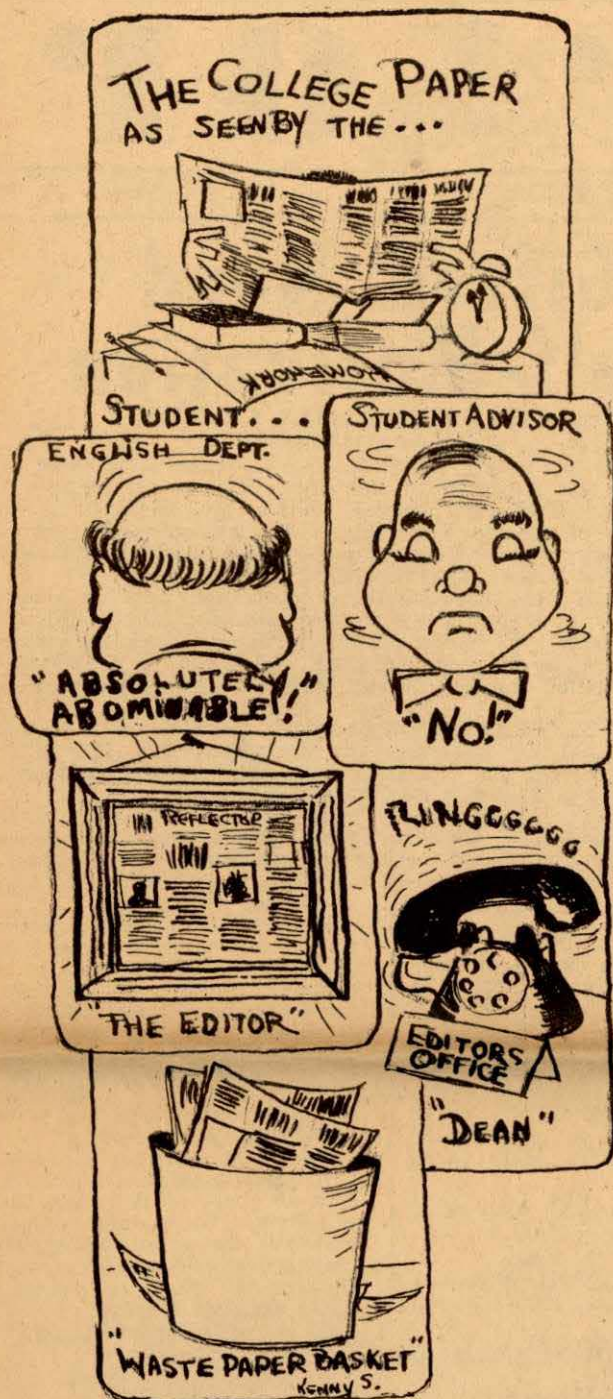 THE COLLEGE PAPER
AS SEEN BY THE...
HOMEWORK
STUDENT...
ENGLISH DEPT.
"ABSOLUTELY
ABOMINABLE!"
STUDENT ADVISOR
"NO!"
REFLECTOR
"THE EDITOR"
RINGGGGGG
EDITORS
OFFICE
"DEAN"
"WASTE PAPER BASKET"
KENNY S.